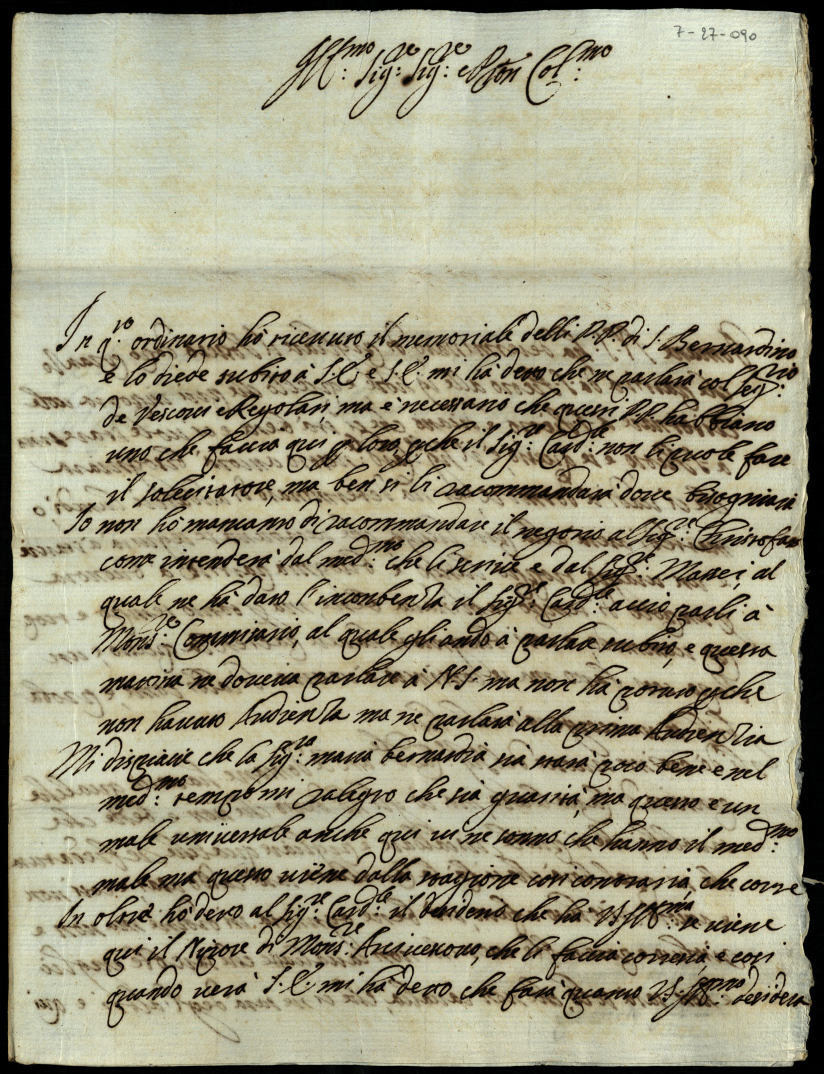 7-27-090
Ill:mo Sig:re Sig:re e Pron Col:mo
In q:to ordinario hò riceuuto il memoriale delli P.P. di S. Bernardino
e lo diede subito à S.E. e S.E. mi hà deto che ne parlarà col Seg:rio
de Vescoui e Regolari, ma è necessario che questi P.P. habbiano
uno che faccia qui p loro, pche il Sig:re Card:le non li puole fare
il solecitatore, ma ben si li racommandarà doue bisogniarà
Io non hò mancato di racommandare il negotio al Sig:re Christofaro
come intenderà dal med:mo che li scriue e dal Sig:re Massei, al
quale ne hà dato l'incombenza il Sig:re Card:le acciò parli à
Mons:re Commissario, al quale gli andò à parlare subito, e questa
mattina ne doueua parlare à N.S. ma non hà potuto pche
non hauuto Audienza ma ne parlarà alla prima Audienzia
Mi dispiace che la Sig:ra maria bernardia sia stata poco bene e nel
med:mo tempo mi ralegro che sia guarita, ma questo e un
male uniuersale anche qui ui ne sonno che hanno il med:mo
male ma questo uiene dalla stagione cosi contraria, che corre
In oltre hò deto al Sig:re Card:le il desiderio che hà VS Ill:ma se uiene
qui il Nipote di Mons:re Arciuescouo, che li faccia cortesia e cosi
quando uerà S.E. mi hà deto che farà quanto VS. Ill:ma desidera